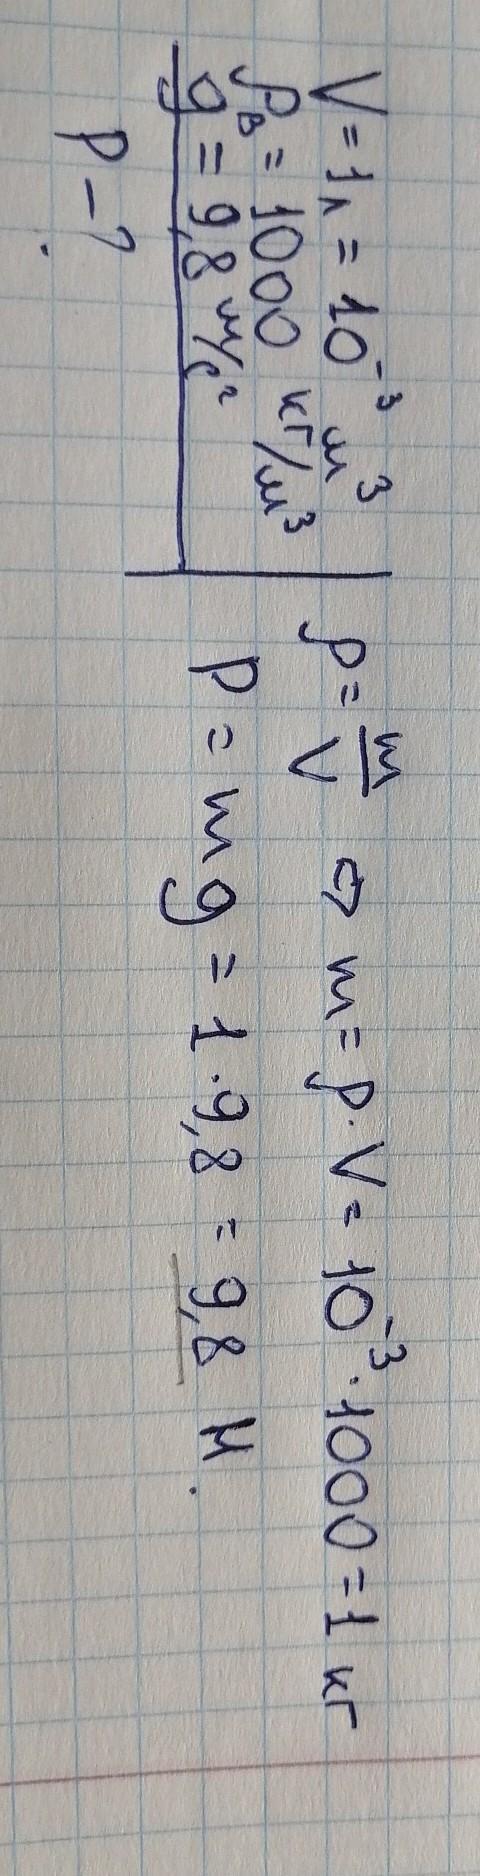 V = 1л = 10⁻³ м³
ρв = 1000 кг/м³
g = 9,8 м/с²
P - ?
ρ = m/V ⇔ m = ρ · V = 10⁻³ · 1000 = 1 кг
P = mg = 1 · 9,8 = 9,8 Н.